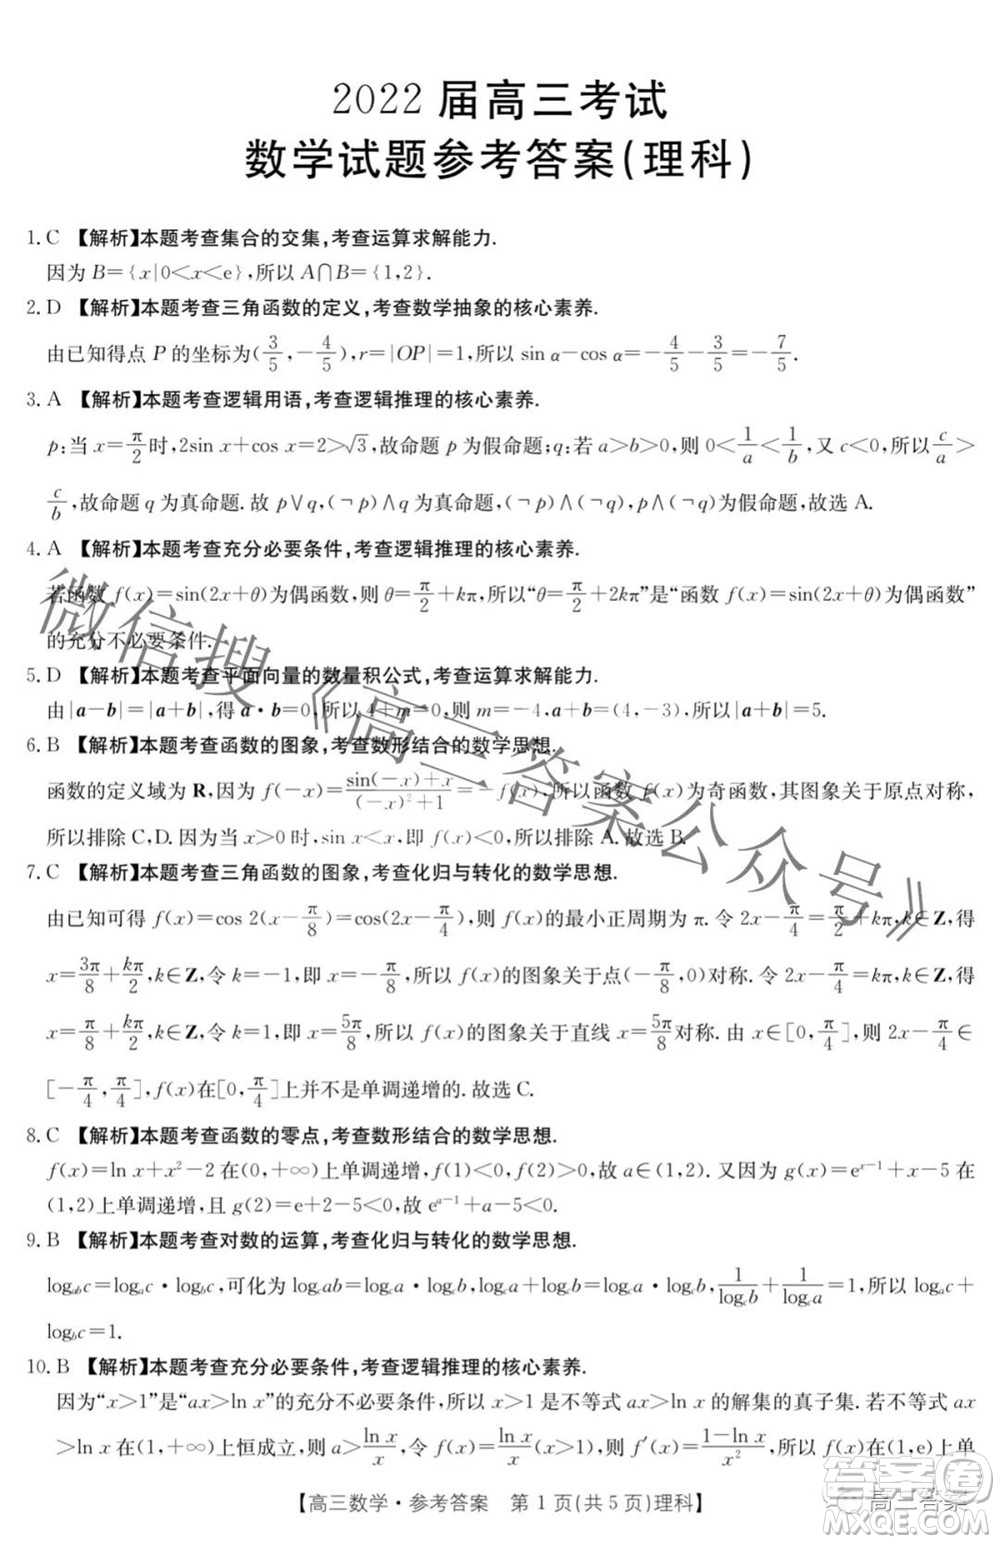 2022 届高三考试
数学试题参考答案(理科)
1. C 【解析】本题考查集合的交集,考查运算求解能力.
因为 B={x|0<x<e},所以 A∩B={1,2}.
2. D 【解析】本题考查三角函数的定义,考查数学抽象的核心素养.
由已知得点 P 的坐标为(3/5,-4/5),r=|OP|=1,所以 sin α-cos α=-4/5-3/5=-7/5.
3. A 【解析】本题考查逻辑用语,考查逻辑推理的核心素养.
p:当 x=π/2时,2sin x+cos x=2>√3,故命题 p 为假命题;q:若 a>b>0,则 0<1/a<1/b,又 c<0,所以c/a>
c/b,故命题 q 为真命题.故 p∨q,(¬p)∧q 为真命题,(¬p)∧(¬q),p∧(¬q)为假命题,故选 A.
4. A 【解析】本题考查充分必要条件,考查逻辑推理的核心素养.
若函数 f(x)=sin(2x+θ)为偶函数,则 θ=π/2+kπ,所以“θ=π/2+2kπ”是“函数 f(x)=sin(2x+θ)为偶函数”
的充分不必要条件.
5. D 【解析】本题考查平面向量的数量积公式,考查运算求解能力.
由|a-b|=|a+b|,得 a·b=0,所以 4+m=0,则 m=-4,a+b=(4,-3),所以|a+b|=5.
6. B 【解析】本题考查函数的图象,考查数形结合的数学思想.
函数的定义域为 R,因为 f(-x)=sin(-x)+x/(-x)²+1=-f(x),所以函数 f(x)为奇函数,其图象关于原点对称,
所以排除 C,D.因为当 x>0 时,sin x<x,即 f(x)<0,所以排除 A.故选 B.
7. C 【解析】本题考查三角函数的图象,考查化归与转化的数学思想.
由已知可得 f(x)=cos 2(x-π/8)=cos(2x-π/4),则 f(x)的最小正周期为 π.令 2x-π/4=π/2+kπ,k∈Z,得
x=3π/8+kπ/2,k∈Z,令 k=-1,即 x=-π/8,所以 f(x)的图象关于点(-π/8,0)对称.令 2x-π/4=kπ,k∈Z,得
x=π/8+kπ/2,k∈Z,令 k=1,即 x=5π/8,所以 f(x)的图象关于直线 x=5π/8对称.由 x∈[0,π/4],则 2x-π/4∈
[-π/4,π/4],f(x)在[0,π/4]上并不是单调递增的.故选 C.
8. C 【解析】本题考查函数的零点,考查数形结合的数学思想.
f(x)=ln x+x²-2 在(0,+∞)上单调递增,f(1)<0,f(2)>0,故 a∈(1,2).又因为 g(x)=eˣ⁻¹+x-5 在
(1,2)上单调递增,且 g(2)=e-3<0,故 eᵃ⁻¹+a-5<0.
9. B 【解析】本题考查对数的运算,考查化归与转化的数学思想.
log_{ab}c=log_a c·log_b c,可化为 log_c ab=log_c a·log_c b,log_c a+log_c b=log_c a·log_c b,1/log_c b+1/log_c a=1,所以 log_a c+
log_b c=1.
10. B 【解析】本题考查充分必要条件,考查逻辑推理的核心素养.
因为“x>1”是“ax>ln x”的充分不必要条件,所以 x>1 是不等式 ax>ln x 的解集的真子集.若不等式 ax
>ln x 在(1,+∞)上恒成立,则 a>ln x/x,令 f(x)=ln x/x(x>1),则 f′(x)=1-ln x/x²,所以 f(x)在(1,e)上单
【高三数学·参考答案 第 1 页(共 5 页)理科】
微信搜《高三答案公众号》
答案卷
高三答案
MXQE.COM